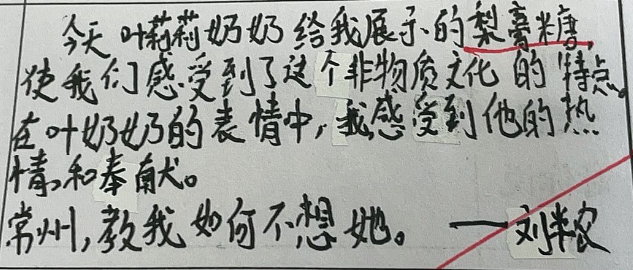 今天叶莉莉奶奶给我展示的梨膏糖,
使我们感受到了这个非物质文化的特点。
在叶奶奶的表情中,我感受到他的热
情和奉献。
常州,教我如何不想她。——刘半农